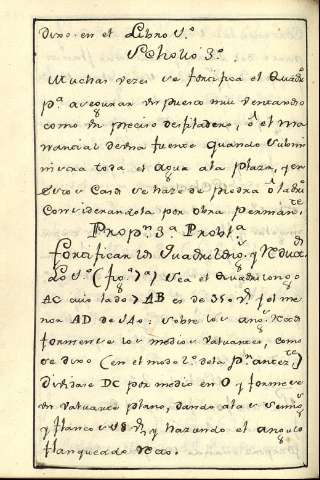 dixo en el Libro 5.º
Scholio 3.º
Muchas vezes se fortifica el Quadro
p.ª asegurar un puesto mui ventajoso
como un preciso desfiladero, ô el ma
nancial de una fuente quando submi
nistra toda el agua ala Plaza, y en
este Caso se haze de piedra ô ladri
Considerandola por obra permân.te
Prop.n 3.ª Probl.ª
Fortificar un Quadrilongo y
do (fig.ª 7ª) Sea el Quadrilongo
AC cuio lado AB es de y el me
nor AD de 540: sobre los ang.s
formense los medios valuartes, como
se dixo (en el modo 2.º dela p.n antez.te)
dividase DC por medio en O y formese
un valuarte plano, dando ala
y flanco y haziendo el angulo
flanqueado recto.